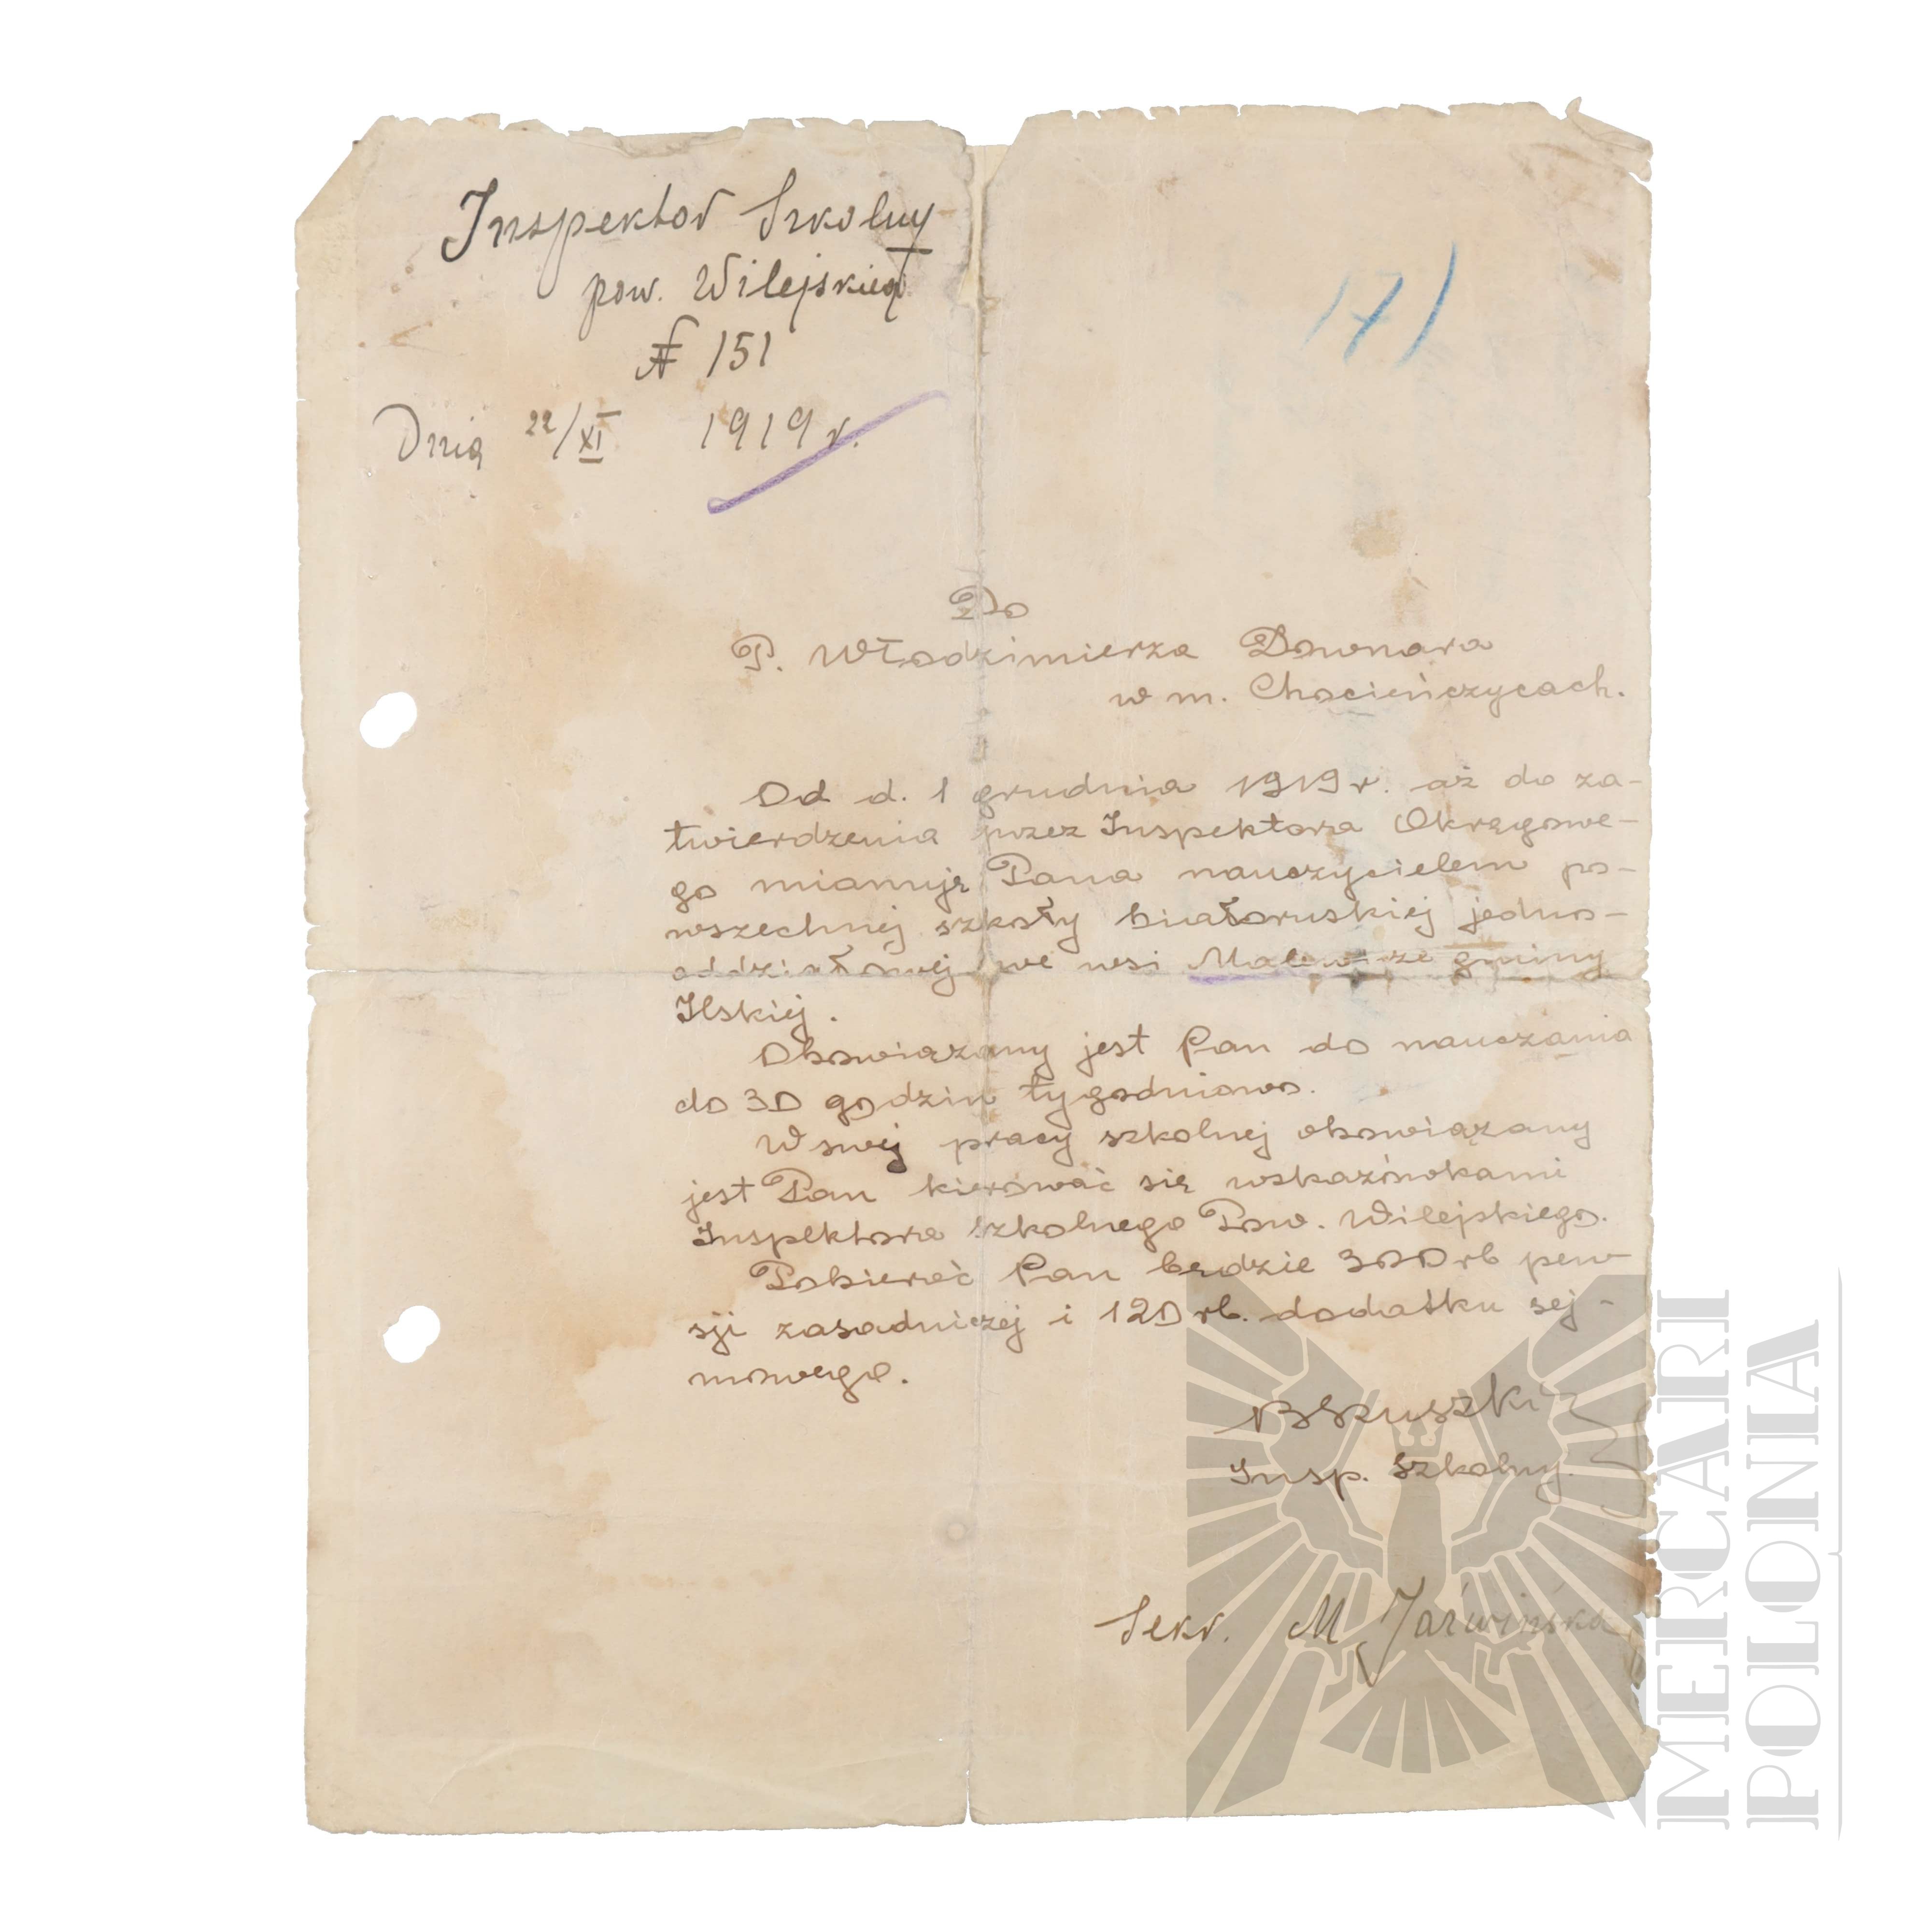 Inspektor Szkolny
pow. Wilejskiego
№ 151
Dnia 22/XI 1919 r.
17)
Do
P. Włodzimierza Downara
w m. Chocieńczycach.
Od d. 1 grudnia 1919 r. aż do za-
twierdzenia przez Inspektora Okręgowe-
go mianuję Pana nauczycielem po-
wszechnej szkoły białoruskiej jedno-
oddziałowej we wsi gminy
Ilskiej.
Obowiązany jest Pan do nauczania
do 30 godzin tygodniowo.
W swej pracy szkolnej obowiązany
jest Pan kierować się wskazówkami
Inspektora szkolnego Pow. Wilejskiego.
Pobierać Pan będzie 300 rb pen-
sji zasadniczej i 120 rb. dodatku sej-
mowego.
Insp. Szkolny.
Sekr. M
MERCARI
POLONIA